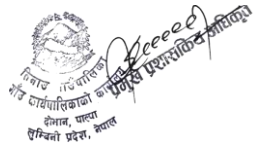 गाउँ कार्यपालिकाको कार्यालय
दोभान, पाल्पा
लुम्बिनी प्रदेश, नेपाल
प्रमुख प्रशासकिय अधिकृत